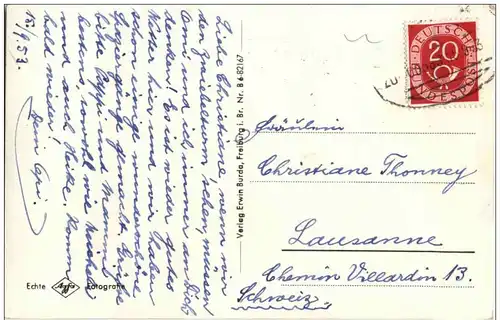 Liebe Christiane, wenn wir
den Zwiebelturm sehen, müssen
Omi und ich immer an Dich
denken! Es ist wieder gutes
Wetter hier und wir haben
schon einige wunderschöne
Spaziergänge gemacht. Grüsse
bitte Pappi und Mammi
bestens, sowohl wie Micheli
und auch Heike. Komm
bald wieder!
Dein Opi.
/9.53.
Verlag Erwin Burda, Freiburg i. Br. Nr. B 6-82167
Echte Agfa Fotografie
DEUTSCHE
20
BUNDESPOST
Fräulein
Christiane Thonney
Lausanne
Chemin Villardin 13.
Schweiz